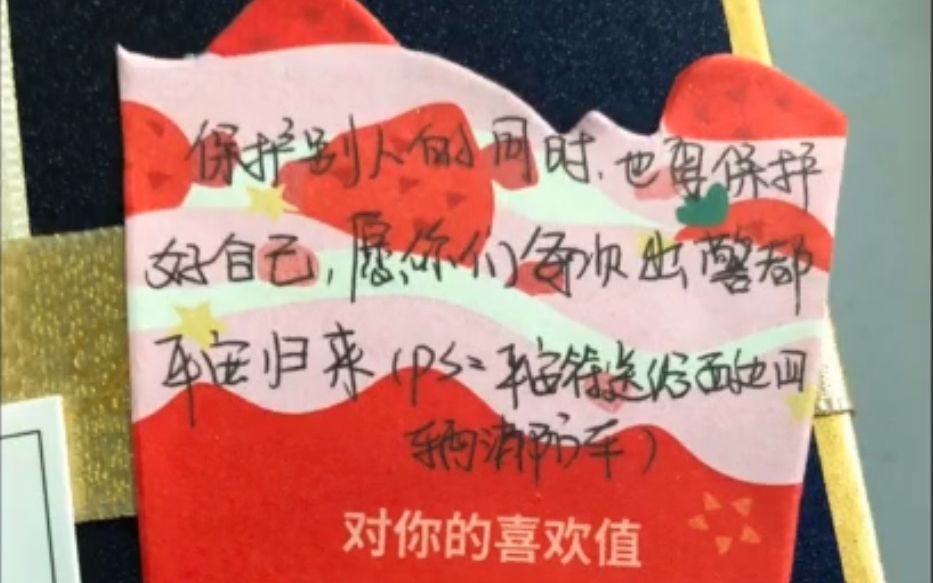 保护别人的同时,也要保护
好自己,愿你们每次出警都
平安归来(PS:平安符送给西站四
辆消防车)
对你的喜欢值